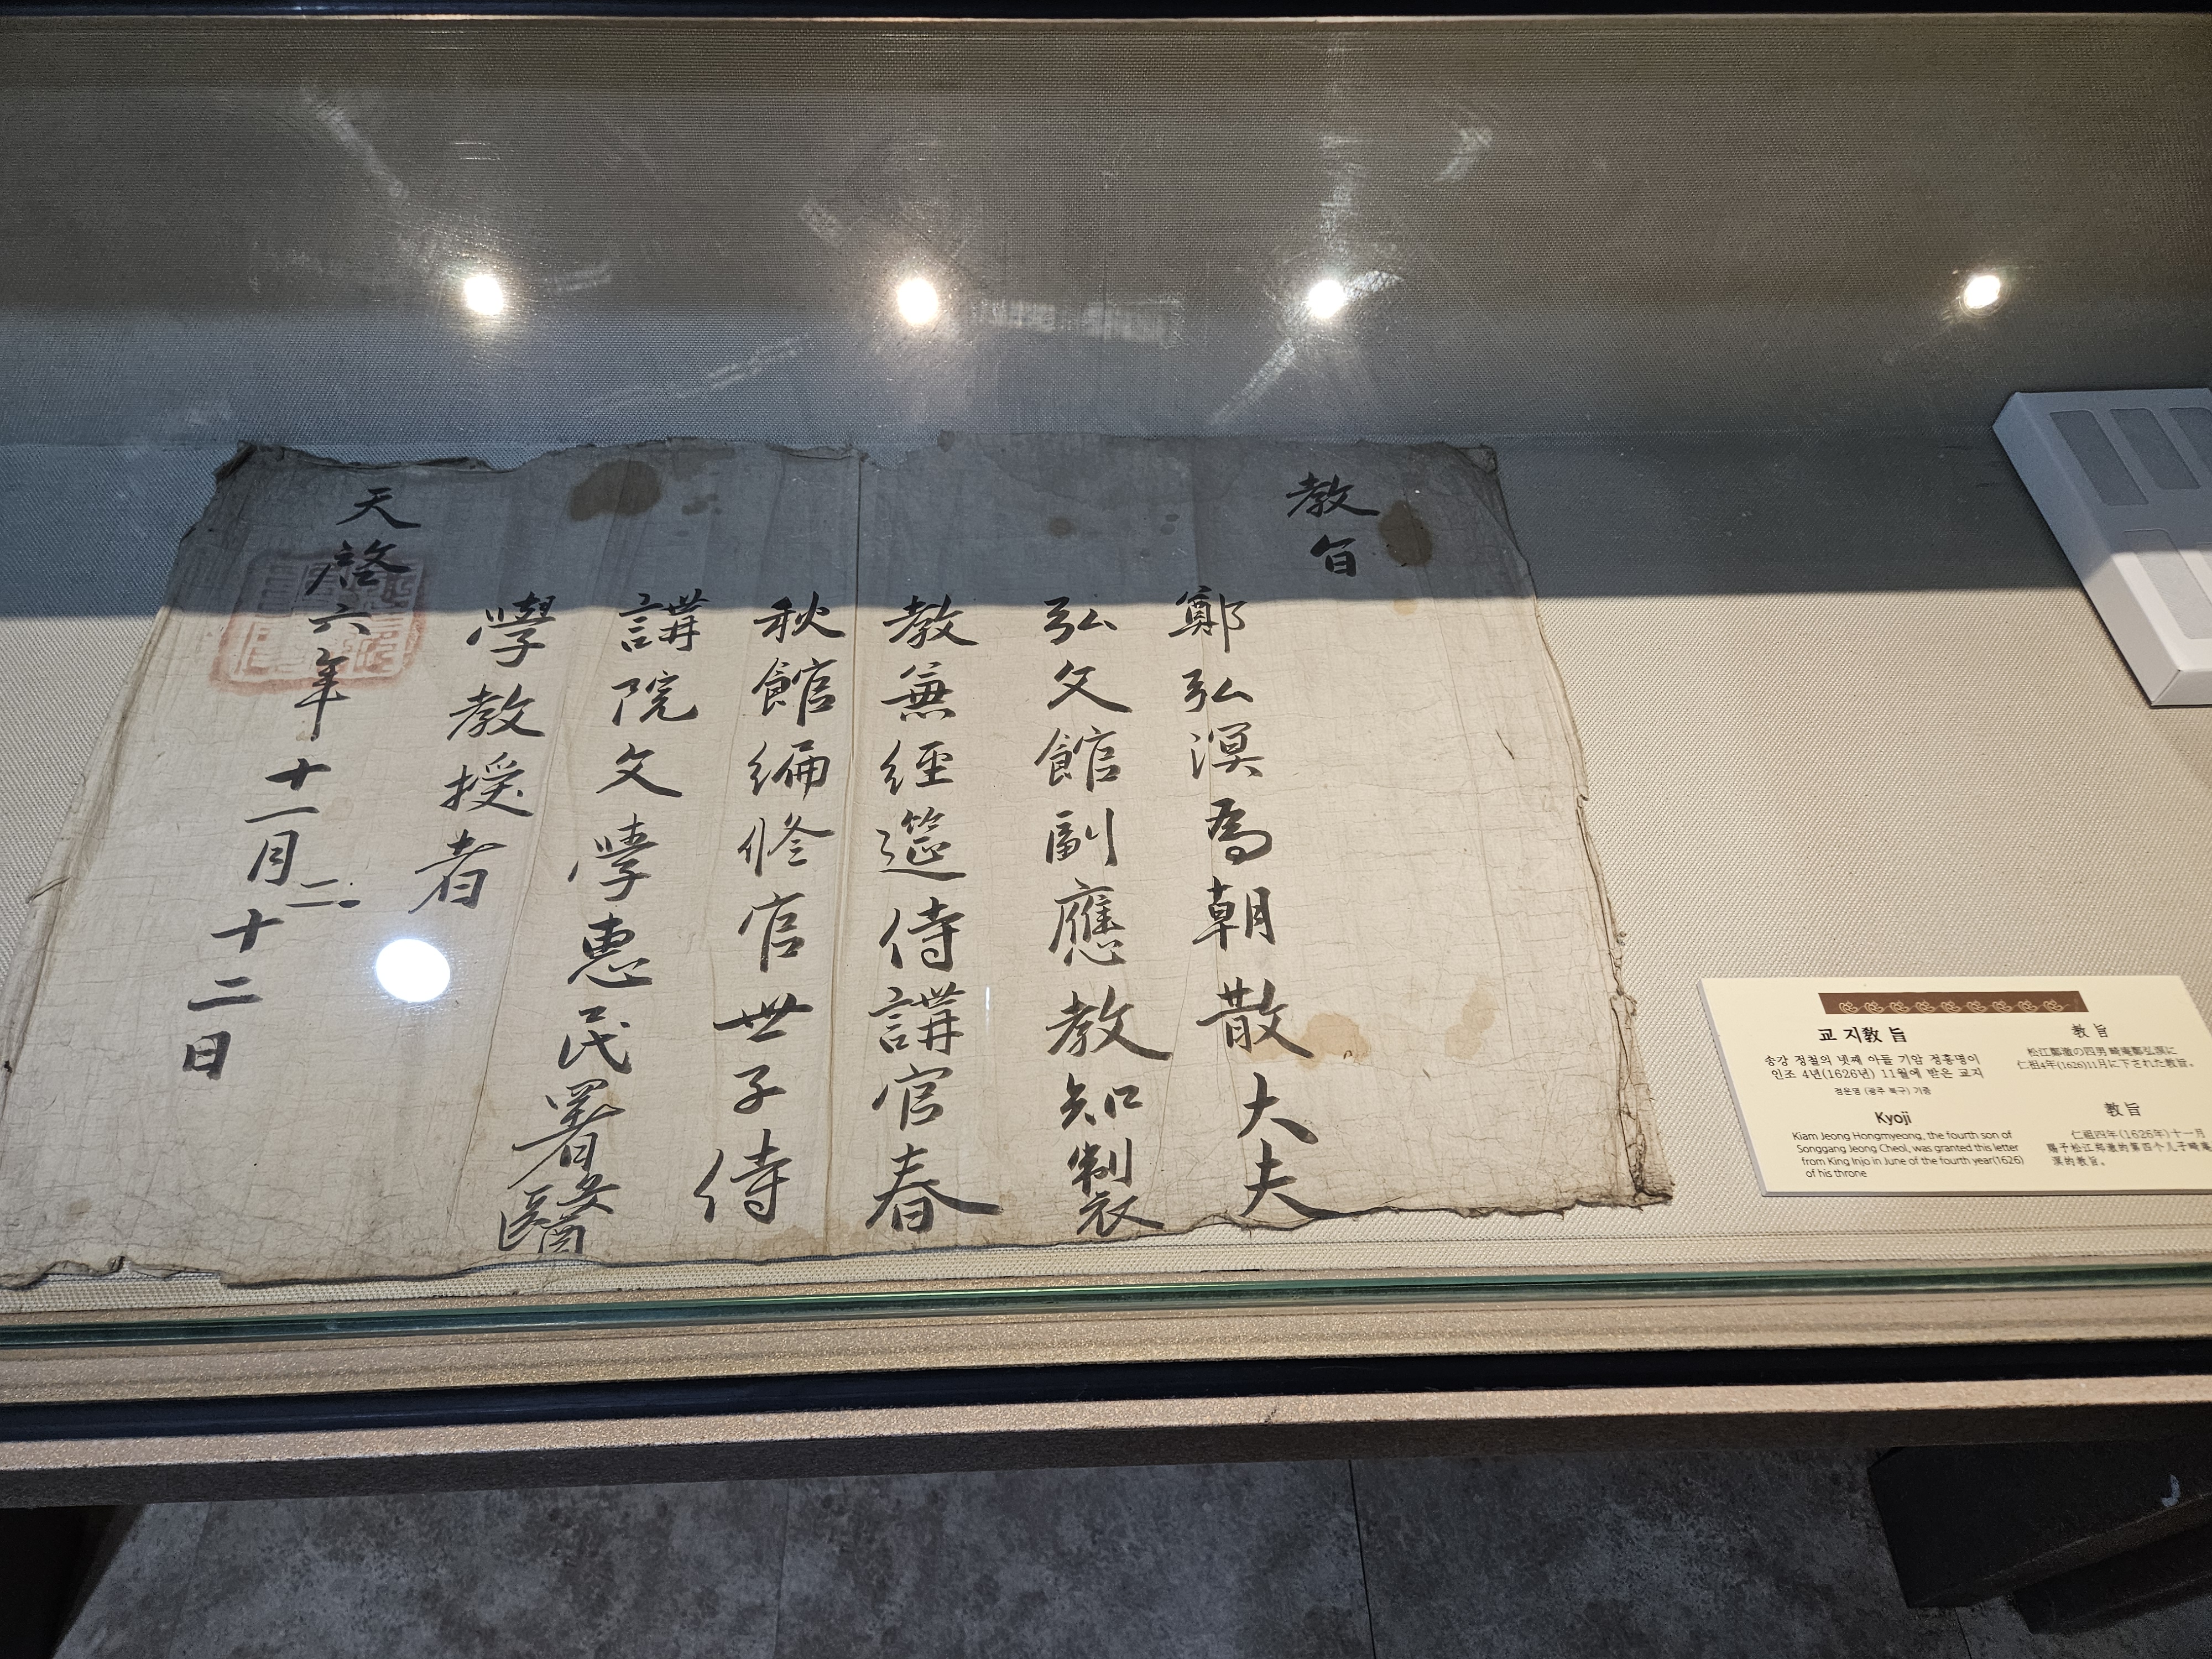 教旨
鄭弘溟爲朝散大夫
弘文館副應教知製
教兼經筵侍講官春
秋館編修官世子侍
講院文學惠民署醫
學教授者
天啓六年十一月二十二日
교 지教 旨
송강 정철의 넷째 아들 기암 정홍명이
인조 4년(1626년) 11월에 받은 교지
정운영 (광주 북구) 기증
Kyoji
Kiam Jeong Hongmyeong, the fourth son of
Songgang Jeong Cheol, was granted this letter
from King Injo in June of the fourth year(1626)
of his throne
教 旨
松江鄭澈の四男 畸庵鄭弘溟に
仁祖4年(1626)11月に下された教旨。
教旨
仁祖四年(1626年)十一月
赐予松江郑澈的第四个儿子畸庵
溟的教旨。